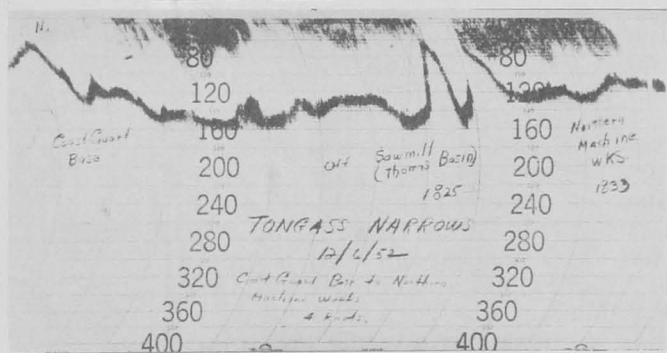 N.
80
120
160
200
240
280
320
360
400
80
120
160
200
240
280
320
360
400
Coast Guard
Base
Off Sawmill
(Thomas Basin)
1825
Northern
Machine
WKS
1833
TONGASS NARROWS
12/6/52
Coast Guard Base to Northern
Machine Works
4 Knots